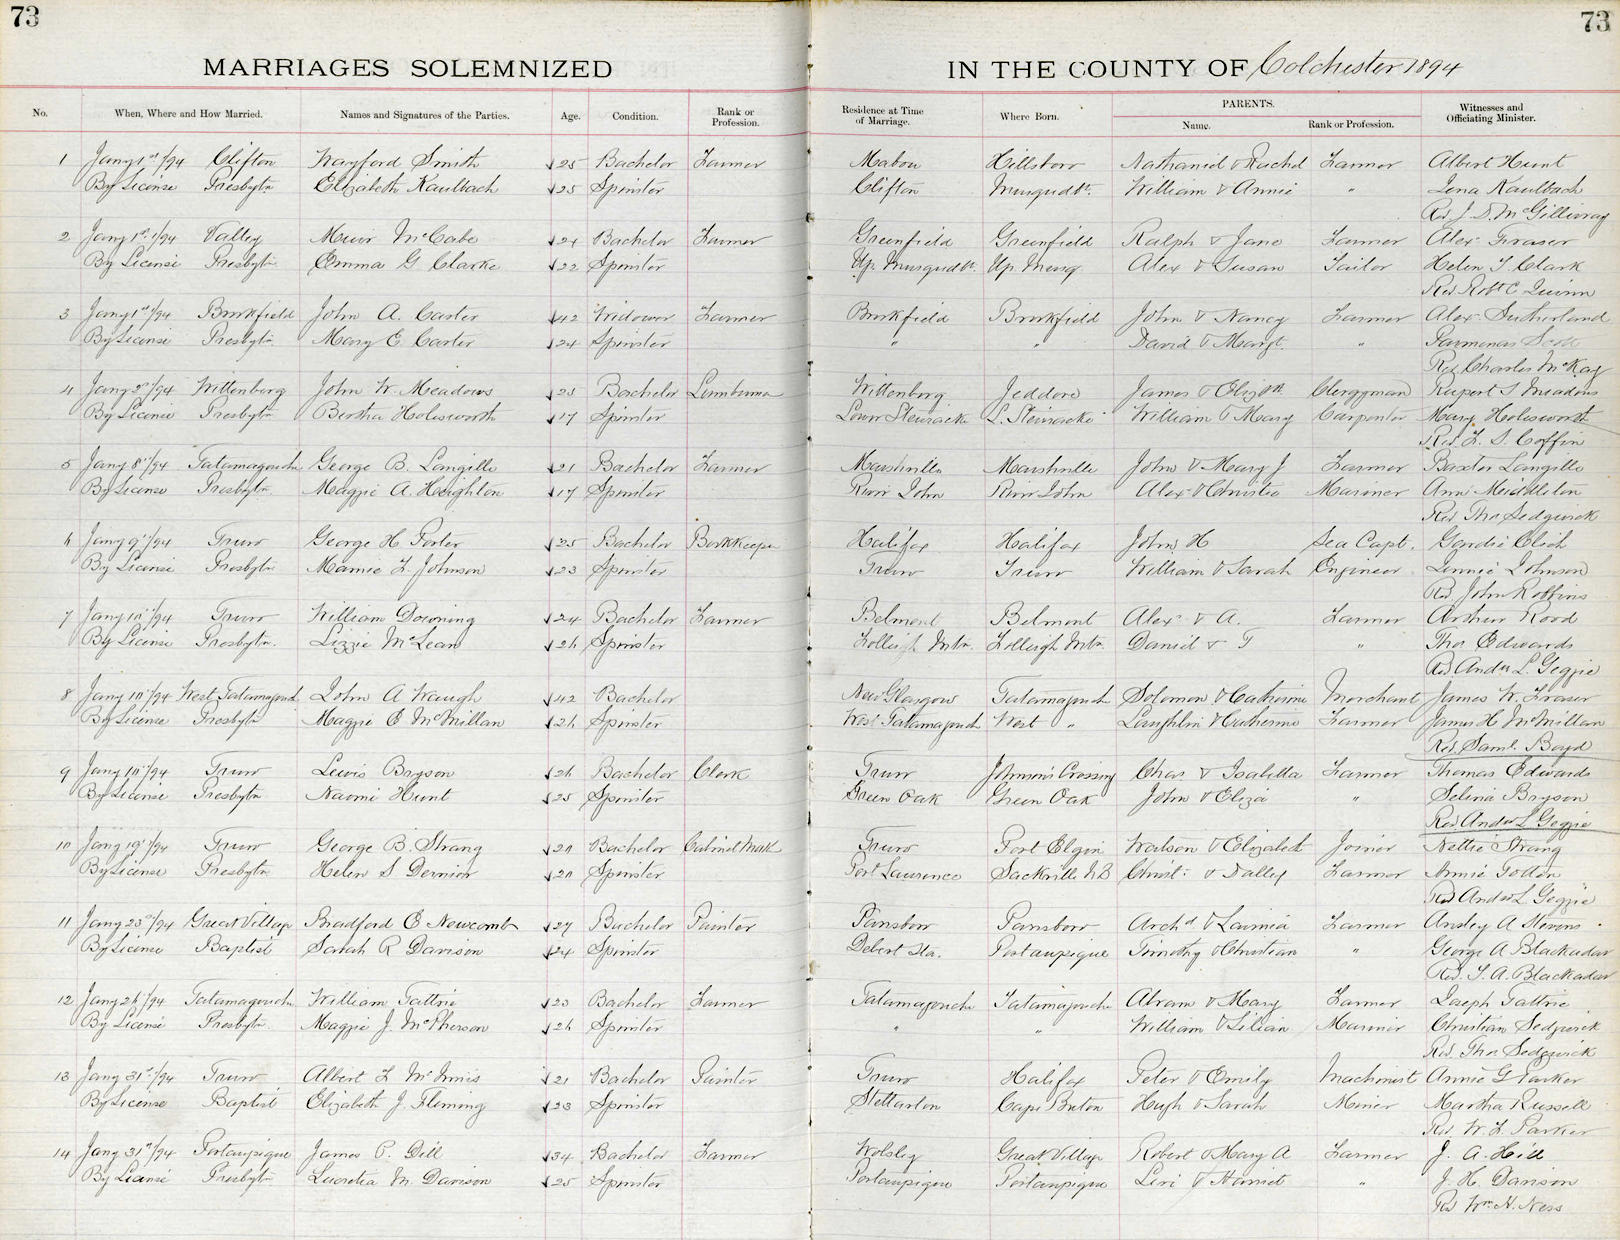 73
73
MARRIAGES SOLEMNIZED IN THE COUNTY OF Colchester 1894
No. When, Where and How Married. Names and Signatures of the Parties. Age. Condition. Rank or Profession. Residence at Time of Marriage. Where Born. PARENTS. Name. Rank or Profession. Witnesses and Officiating Minister.
1 Jany 1st/94 Clifton Wayford Smith 25 Bachelor Farmer Mabou Hillsboro Nathaniel & Rachel Farmer Albert Hunt
By License Presbytn Elizabeth Kaulbach 25 Spinster Clifton Musquodt. William & Annie " Lena Kaulbach
Rev. J. D. McGillivray
2 Jany 1st/94 Valley Muir McCabe 24 Bachelor Farmer Greenfield Greenfield Ralph & Jane Farmer Alex Fraser
By License Presbytn Emma G Clarke 22 Spinster Up. Musquodt. Up. Musq Alex & Susan Tailor Helen T. Clark
Rev. Robt C Quinn
3 Jany 1st/94 Brookfield John A. Carter 42 Widower Farmer Brookfield Brookfield John & Nancy Farmer Alex Sutherland
By License Presbytn Mary E Carter 24 Spinster " " David & Margt. " Parmenas Scott
Rev. Charles McKay
4 Jany 2d/94 Wittenberg John W. Meadows 25 Bachelor Lumberman Wittenberg Jeddore James & Elizbth Clergyman Rupert S Meadows
By License Presbytn Bertha Holesworth 17 Spinster Lower Stewiacke L. Stewiacke William & Mary Carpenter Mary Holesworth
Rev. F. S. Coffin
5 Jany 8th/94 Tatamagouche George B. Langille 21 Bachelor Farmer Marshville Marshville John & Mary J Farmer Baxter Langille
By License Presbytn Maggie A. Heighton 17 Spinster River John River John Alex & Christie Mariner Ann Middleton
Rev Thos Sedgwick
6 Jany 9th/94 Truro George H Porter 25 Bachelor Bookkeeper Halifax Halifax John H Sea Capt.
By License Presbytn Mamie F. Johnson 23 Spinster Truro Truro William & Sarah Engineer Johnson
Rev. John Robbins
7 Jany 10th/94 Truro William Downing 24 Bachelor Farmer Belmont Belmont Alex & A. Farmer Arthur Rood
By License Presbytn. Lizzie McLean 26 Spinster Folleigh Mtn. Folleigh Mtn Daniel & T " Thos Edwards
Rev Andw L Geggie
8 Jany 10th/94 West Tatamagouch John A Waugh 42 Bachelor New Glasgow Tatamagouch Solomon & Catherine Merchant James W. Fraser
By License Presbytn Maggie C McMillan 26 Spinster West Tatamagouch West " Laughlin & Catherine Farmer James H McMillan
Rev. Saml. Boyd
9 Jany 10th/94 Truro Lewis Bryson 26 Bachelor Clerk Truro Johnson's Crossing Chas & Isabella Farmer Thomas Edwards
By License Presbytn Naomi Hunt 25 Spinster Green Oak Green Oak John & Eliza " Selina Bryson
Rev Andw L Geggie
10 Jany 19th/94 Truro George B. Strang Bachelor Cabinet Mak Truro Port Elgin Watson & Elizabeth Joiner Nettie Strang
By License Presbytn Helen S Spinster Port Laurence Sackville N B Christ. & Farmer Annie
Rev Andw L Geggie
11 Jany 23d/94 Great Village Bradford E Newcomb 27 Bachelor Painter Parrsboro Parrsboro Archd & Lavinia Farmer Ansley A Stevens
By License Baptist Sarah R Davison 24 Spinster Debert Sta. Portaupique Timothy & Christian " George A Blackadar
Rev. T. A. Blackadar
12 Jany 26th/94 Tatamagouche William Tattrie 23 Bachelor Farmer Tatamagouche Tatamagouche Abram & Mary Farmer Joseph Tattrie
By License Presbytn. Maggie J. McPherson 26 Spinster " " William & Lilian Mariner Christian Sedgwick
Rev. Thos Sedgwick
13 Jany 31st/94 Truro Albert L McInnis 21 Bachelor Painter Truro Halifax Peter & Emily Machinist Annie G Parker
By License Baptist Elizabeth J. Fleming 23 Spinster Stellarton Cape Breton Hugh & Sarah Miner Martha Russell
Rev. W. F. Parker
14 Jany 31st/94 Portaupique James P. Dill 34 Bachelor Farmer Wolsley Great Village Robert & Mary A Farmer J. A. Hill
By License Presbytn Lucretia M. Davison 25 Spinster Portaupique Portaupique Levi & Harriet " J. H. Davison
Rev Wm. H. Ness